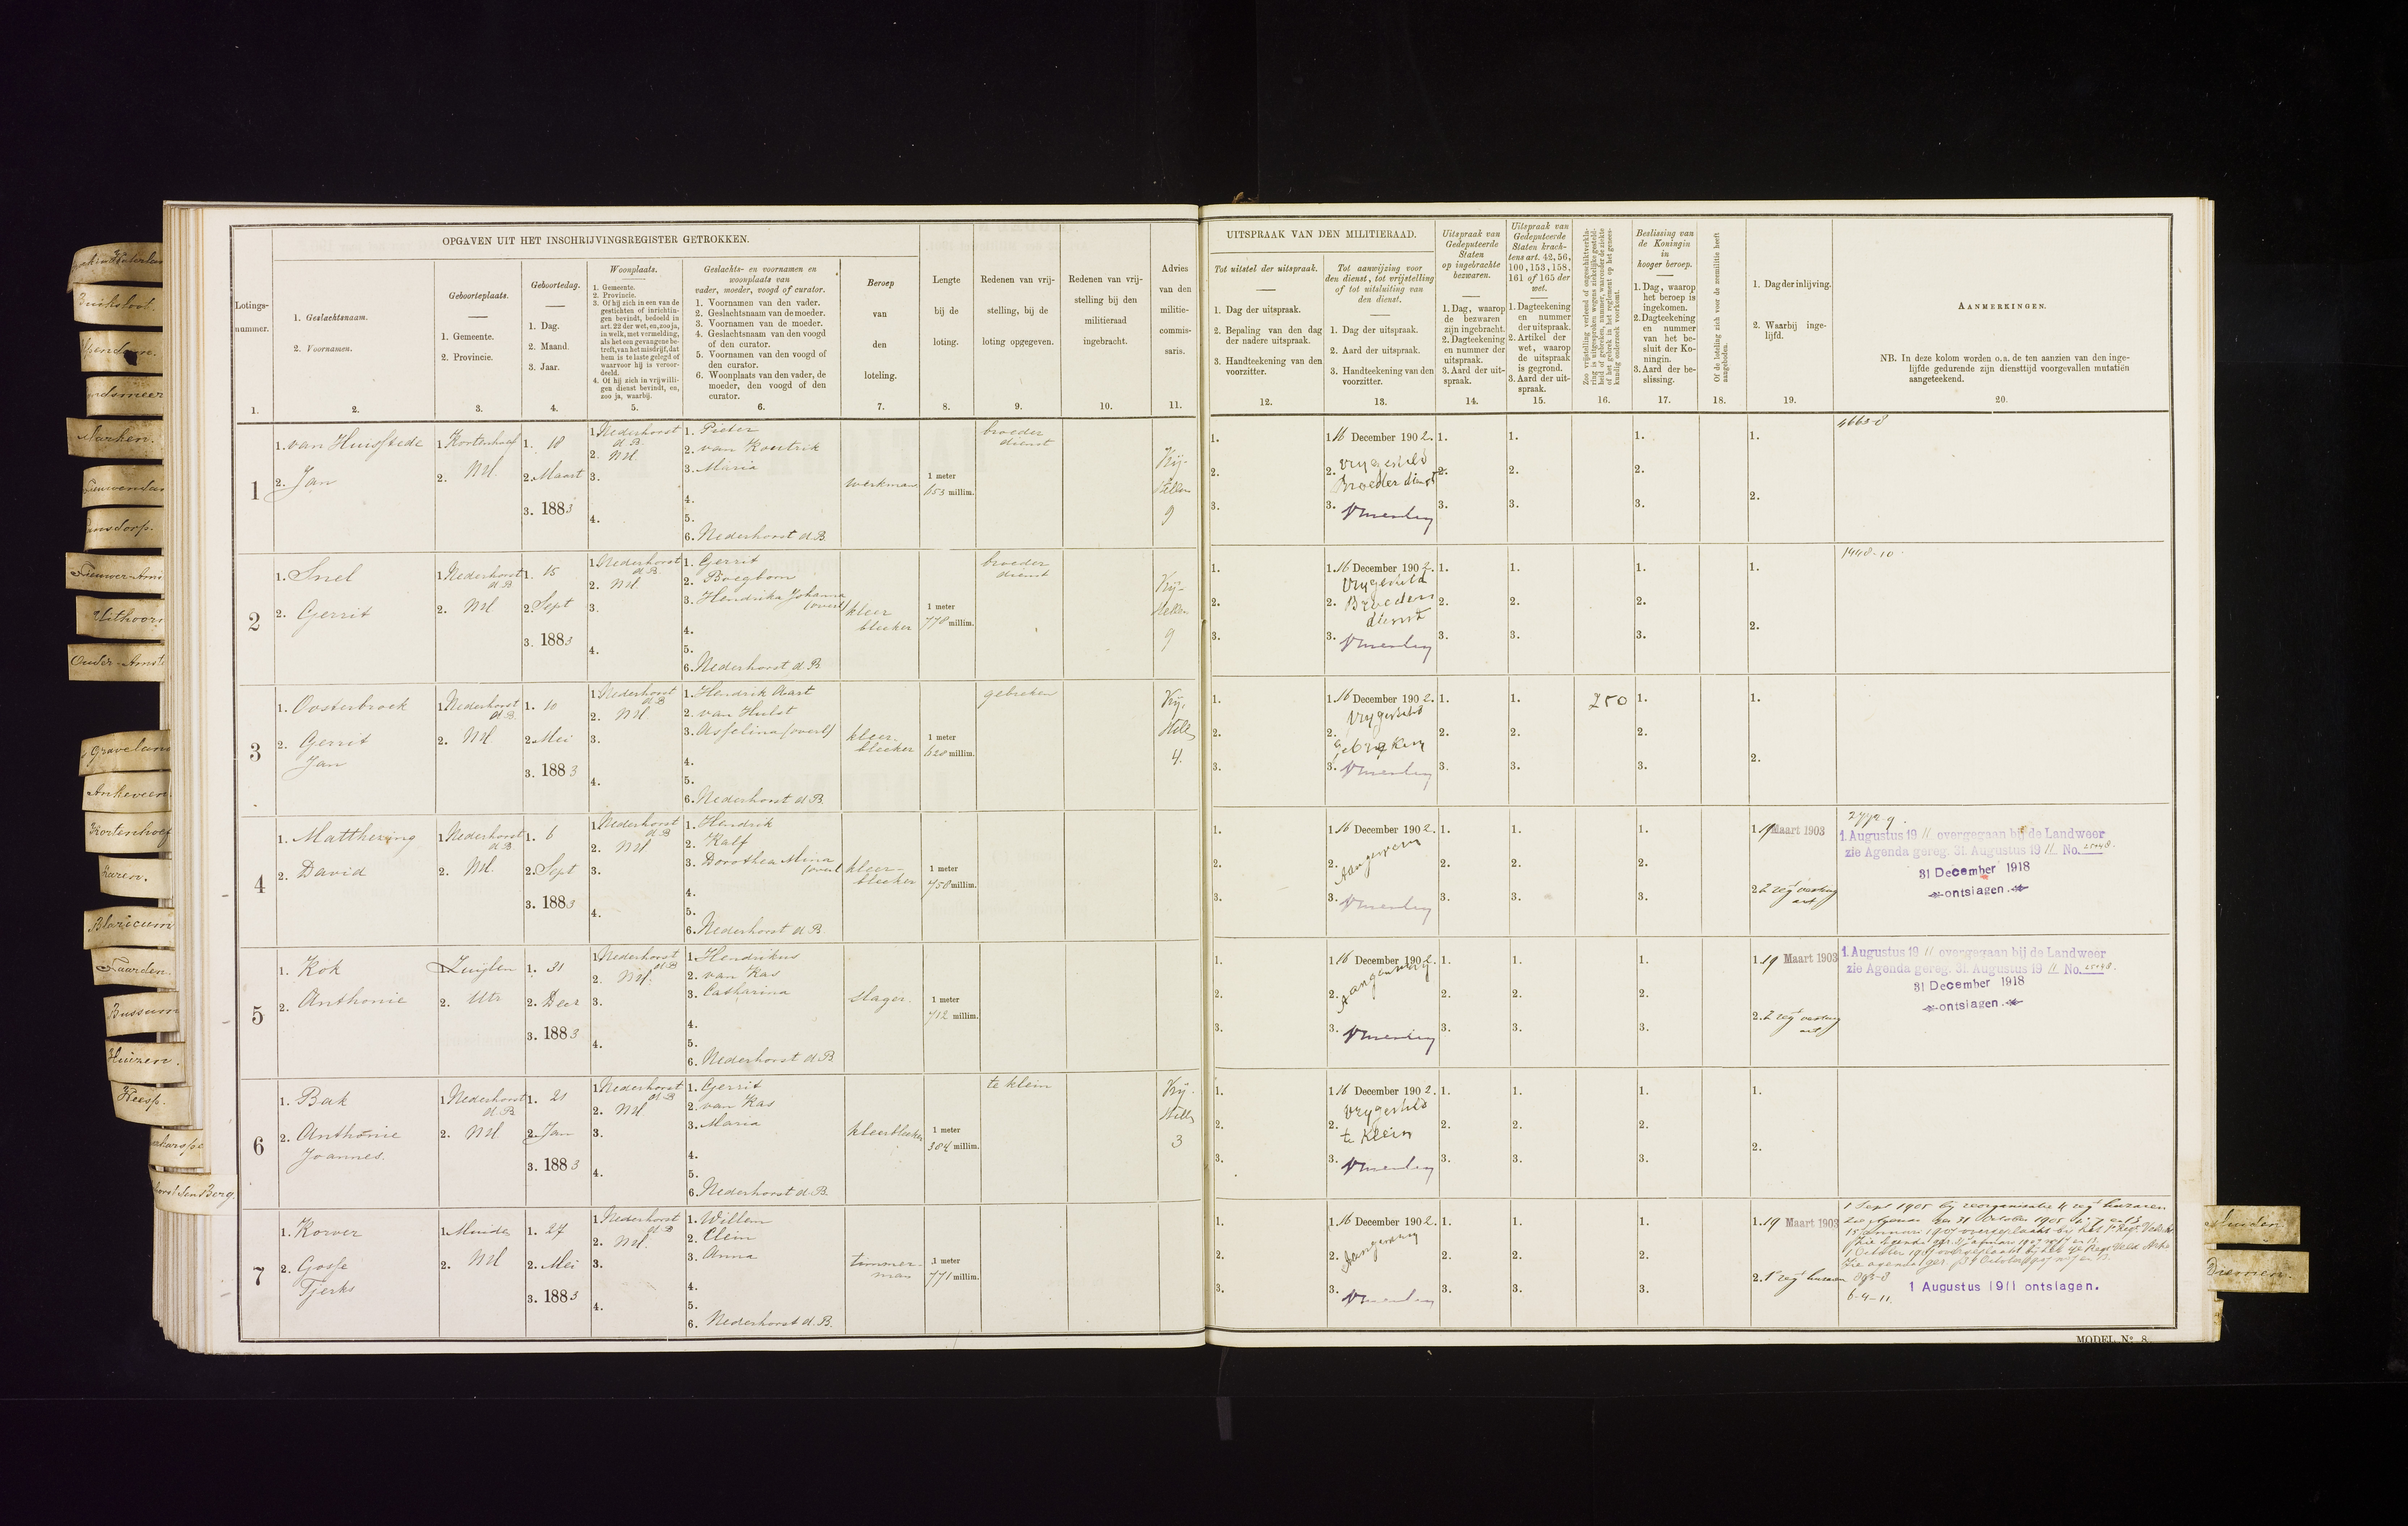 OPGAVEN UIT HET INSCHRIJVINGSREGISTER GETROKKEN.
Lotings-
nummer.
1.
1. Geslachtsnaam.
2. Voornamen.
2.
Geboorteplaats.
1. Gemeente.
2. Provincie.
3.
Geboortedag.
1. Dag.
2. Maand.
3. Jaar.
4.
Woonplaats.
1. Gemeente.
2. Provincie.
3. Of hij zich in een van de
gestichten of inrichtin-
gen bevindt, bedoeld in
art. 22 der wet, en, zoo ja,
in welk, met vermelding,
als het een gevangene be-
treft, van het misdrijf, dat
hem is te laste gelegd of
waarvoor hij is veroor-
deeld.
4. Of hij zich in vrijwilli-
gen dienst bevindt, en,
zoo ja, waarbij.
5.
Geslachts- en voornamen en
woonplaats van
vader, moeder, voogd of curator.
1. Voornamen van den vader.
2. Geslachtsnaam van de moeder.
3. Voornamen van de moeder.
4. Geslachtsnaam van den voogd
of den curator.
5. Voornamen van den voogd of
den curator.
6. Woonplaats van den vader, de
moeder, den voogd of den
curator.
6.
Beroep
van
den
loteling.
7.
Lengte
bij de
loting.
8.
Redenen van vrij-
stelling, bij de
loting opgegeven.
9.
Redenen van vrij-
stelling bij den
militieraad
ingebracht.
10.
Advies
van den
militie-
commis-
saris.
11.
UITSPRAAK VAN DEN MILITIERAAD.
Tot uitstel der uitspraak.
1. Dag der uitspraak.
2. Bepaling van den dag
der nadere uitspraak.
3. Handteekening van den
voorzitter.
12.
Tot aanwijzing voor
den dienst, tot vrijstelling
of tot uitsluiting van
den dienst.
1. Dag der uitspraak.
2. Aard der uitspraak.
3. Handteekening van den
voorzitter.
13.
Uitspraak van
Gedeputeerde
Staten
op ingebrachte
bezwaren.
1. Dag, waarop
de bezwaren
zijn ingebracht.
2. Dagteekening
en nummer der
uitspraak.
3. Aard der uit-
spraak.
14.
Uitspraak van
Gedeputeerde
Staten krach-
tens art. 42, 56,
100, 153, 158,
161 of 165 der
wet.
1. Dagteekening
en nummer
der uitspraak.
2. Artikel der
wet, waarop
de uitspraak
is gegrond.
3. Aard der uit-
spraak.
15.
Zoo vrijstelling verleend of ongeschiktverkla-
ring is uitgesproken wegens ziekelijke gesteld-
heid of gebreken, nummer, waaronder de ziekte
of het gebrek in het reglement op het genees-
kundig onderzoek voorkomt.
16.
Beslissing van
de Koningin
in
hooger beroep.
1. Dag, waarop
het beroep is
ingekomen.
2. Dagteekening
en nummer
van het be-
sluit der Ko-
ningin.
3. Aard der be-
slissing.
17.
Of de loteling zich voor de zeemilitie heeft
aangeboden.
18.
1. Dag der inlijving.
2. Waarbij inge-
lijfd.
19.
AANMERKINGEN.
NB. In deze kolom worden o.a. de ten aanzien van den inge-
lijfde gedurende zijn diensttijd voorgevallen mutatiën
aangeteekend.
20.
1
1. van Huisstede
2. Jan
1. Kortenhoef
2. NH.
1. 18
2. Maart
3. 1883
1. Nederhorst
d. B.
2. NH.
3.
4.
1. Pieter
2. van Koestrik
3. Maria
4.
5.
6. Nederhorst d. B.
werkman
1 meter
653 millim.
broeder
dienst
9
1.
2.
3.
1. 16 December 1902.
2. Vrijgesteld
Broederdienst
3.
4663-8
2
1. Snel
2. Gerrit
1. Nederhorst
d. B.
2. NH
1. 15
2. Sept
3. 1883
1. Nederhorst
d. B.
2. NH.
3.
4.
1. Gerrit
2. Boegborn
3. Hendrika Johanna
(overl)
4.
5.
6. Nederhorst d. B.
kleer
bleeker
1 meter
778 millim.
broeder
dienst
9
1. 16 December 1902.
2. Vrijgesteld
Broeder
dienst
3.
1448-10
3
1. Oosterbroek
2. Gerrit
Jan
1. Nederhorst
d. B.
2. NH.
1. 10
2. Mei
3. 1883
1. Nederhorst
d. B.
2. NH
3.
4.
1. Hendrik Aart
2. van Hulst
3. Asselina (overl)
4.
5.
6. Nederhorst d. B.
kleer-
bleeker
1 meter
620 millim.
gebreken
4.
1. 16 December 1902.
2. Vrijgesteld
gebreken
3.
250
4
1. Matthezing
2. David
1. Nederhorst
d. B.
2. NH.
1. 6
2. Sept
3. 1883
1. Nederhorst
d. B.
2. NH
3.
4.
1. Hendrik
2. Kalf
3. Dorothea Mina
(overl
4.
5.
6. Nederhorst d. B.
kleer-
bleeker
1 meter
758 millim.
1. 16 December 1902.
2. Aangewezen
3.
1. 19 Maart 1903
2. 2 regt vesting
art
1. Augustus 1911 overgegaan bij de Landweer
zie Agenda gereg. 31. Augustus 1911 No.
31 December 1918
ontslagen.
5
1. Kok
2. Anthonie
1. Zuijlen
2. Utr
1. 31
2. Decr
3. 1883
1. Nederhorst
d. B
2. NH.
3.
4.
1. Hendrikus
2. van Kas
3. Catharina
4.
5.
6. Nederhorst d. B.
slager.
1 meter
712 millim.
1. 16 December 1902.
2. Aangewezen
3.
1. 19 Maart 1903
2. 2 regt vesting
art
1. Augustus 1911 overgegaan bij de Landweer
zie Agenda gereg. 31. Augustus 1911 No.
31 December 1918
ontslagen.
6
1. Bak
2. Anthonie
Joannes.
1. Nederhorst
d. B.
2. NH
1. 21
2. Jan
3. 1883
1. Nederhorst
d. B
2. NH
3.
4.
1. Gerrit
2. van Kas
3. Maria
4.
5.
6. Nederhorst d. B.
kleerbleeker
1 meter
384 millim.
te klein
3
1. 16 December 1902.
2. Vrijgesteld
te klein
3.
7
1. Korver
2. Gosse
Tjerks
1. Muiden
2. NH
1. 27
2. Mei
3. 1883
1. Nederhorst
d. B
2. NH.
3.
4.
1. Willem
2. Clein
3. Anna
4.
5.
6. Nederhorst d. B.
timmer-
man
1 meter
771 millim.
1. 16 December 1902.
2. Aangewezen
3.
1. 19 Maart 1903
2. 1e regt huzaren
1 Sept 1905 bij reorganisatie 4 regt huzaren
6-4-11.
1 Augustus 1911 ontslagen.
MODEL No. 8.
Buiksloot.
Marken.
Uithoorn
Ankeveen
Kortenhoef
Laren.
Blaricum
Naarden.
Bussum
Huizen.
Weesp.
Muiden
Diemen.